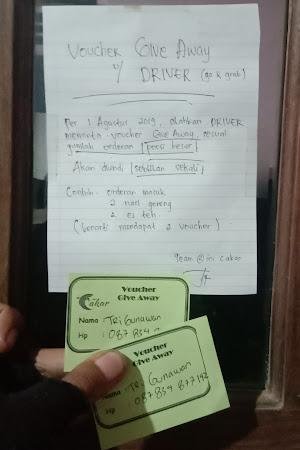 Voucher Give Away
u/ DRIVER (go & grab)
Per 1 Agustus 2019, silahkan DRIVER
meminta voucher Give Away, sesuai
jumlah orderan porsi besar
Akan diundi sebulan sekali
Contoh: orderan masuk
2 nasi goreng
2 es teh
(berarti mendapat 2 voucher)
Team @ini cakar
Cakar
Voucher
Give Away
Nama : Tri Gunawan
Hp : 087 834
Voucher
Give Away
Nama : Tri Gunawan
Hp : 087 834 877 142